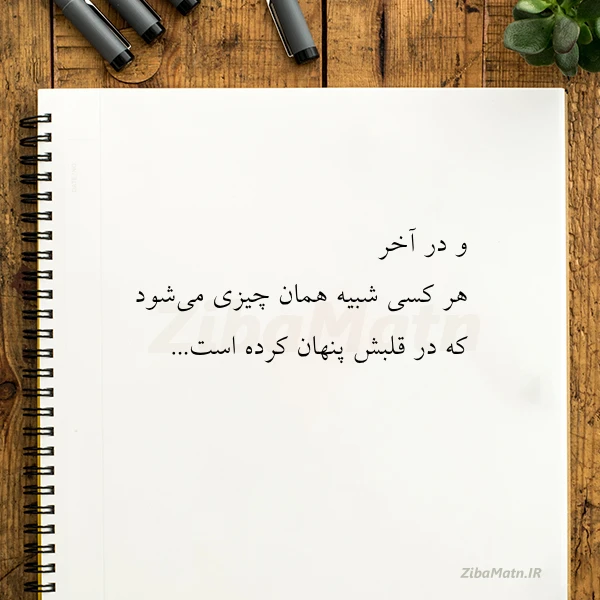 و در آخر
هر کسی شبیه همان چیزی می‌شود
که در قلبش پنهان کرده است...
ZibaMatn
ZibaMatn.IR